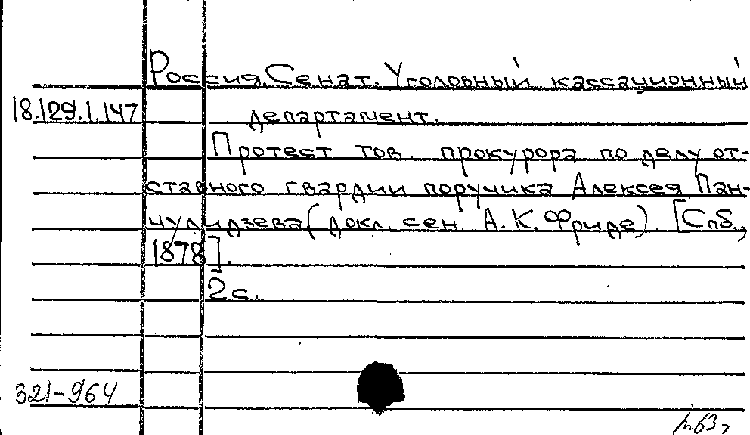 Россия. Сенат. Уголовный кассационный
18.129.1.147
департамент.
Протест тов. прокурора по делу от-
ставного гвардии поручика Алексея Пан-
чулидзева (докл. сен. А. К. Фриде). [Спб.,
1878].
2 с.
321-964